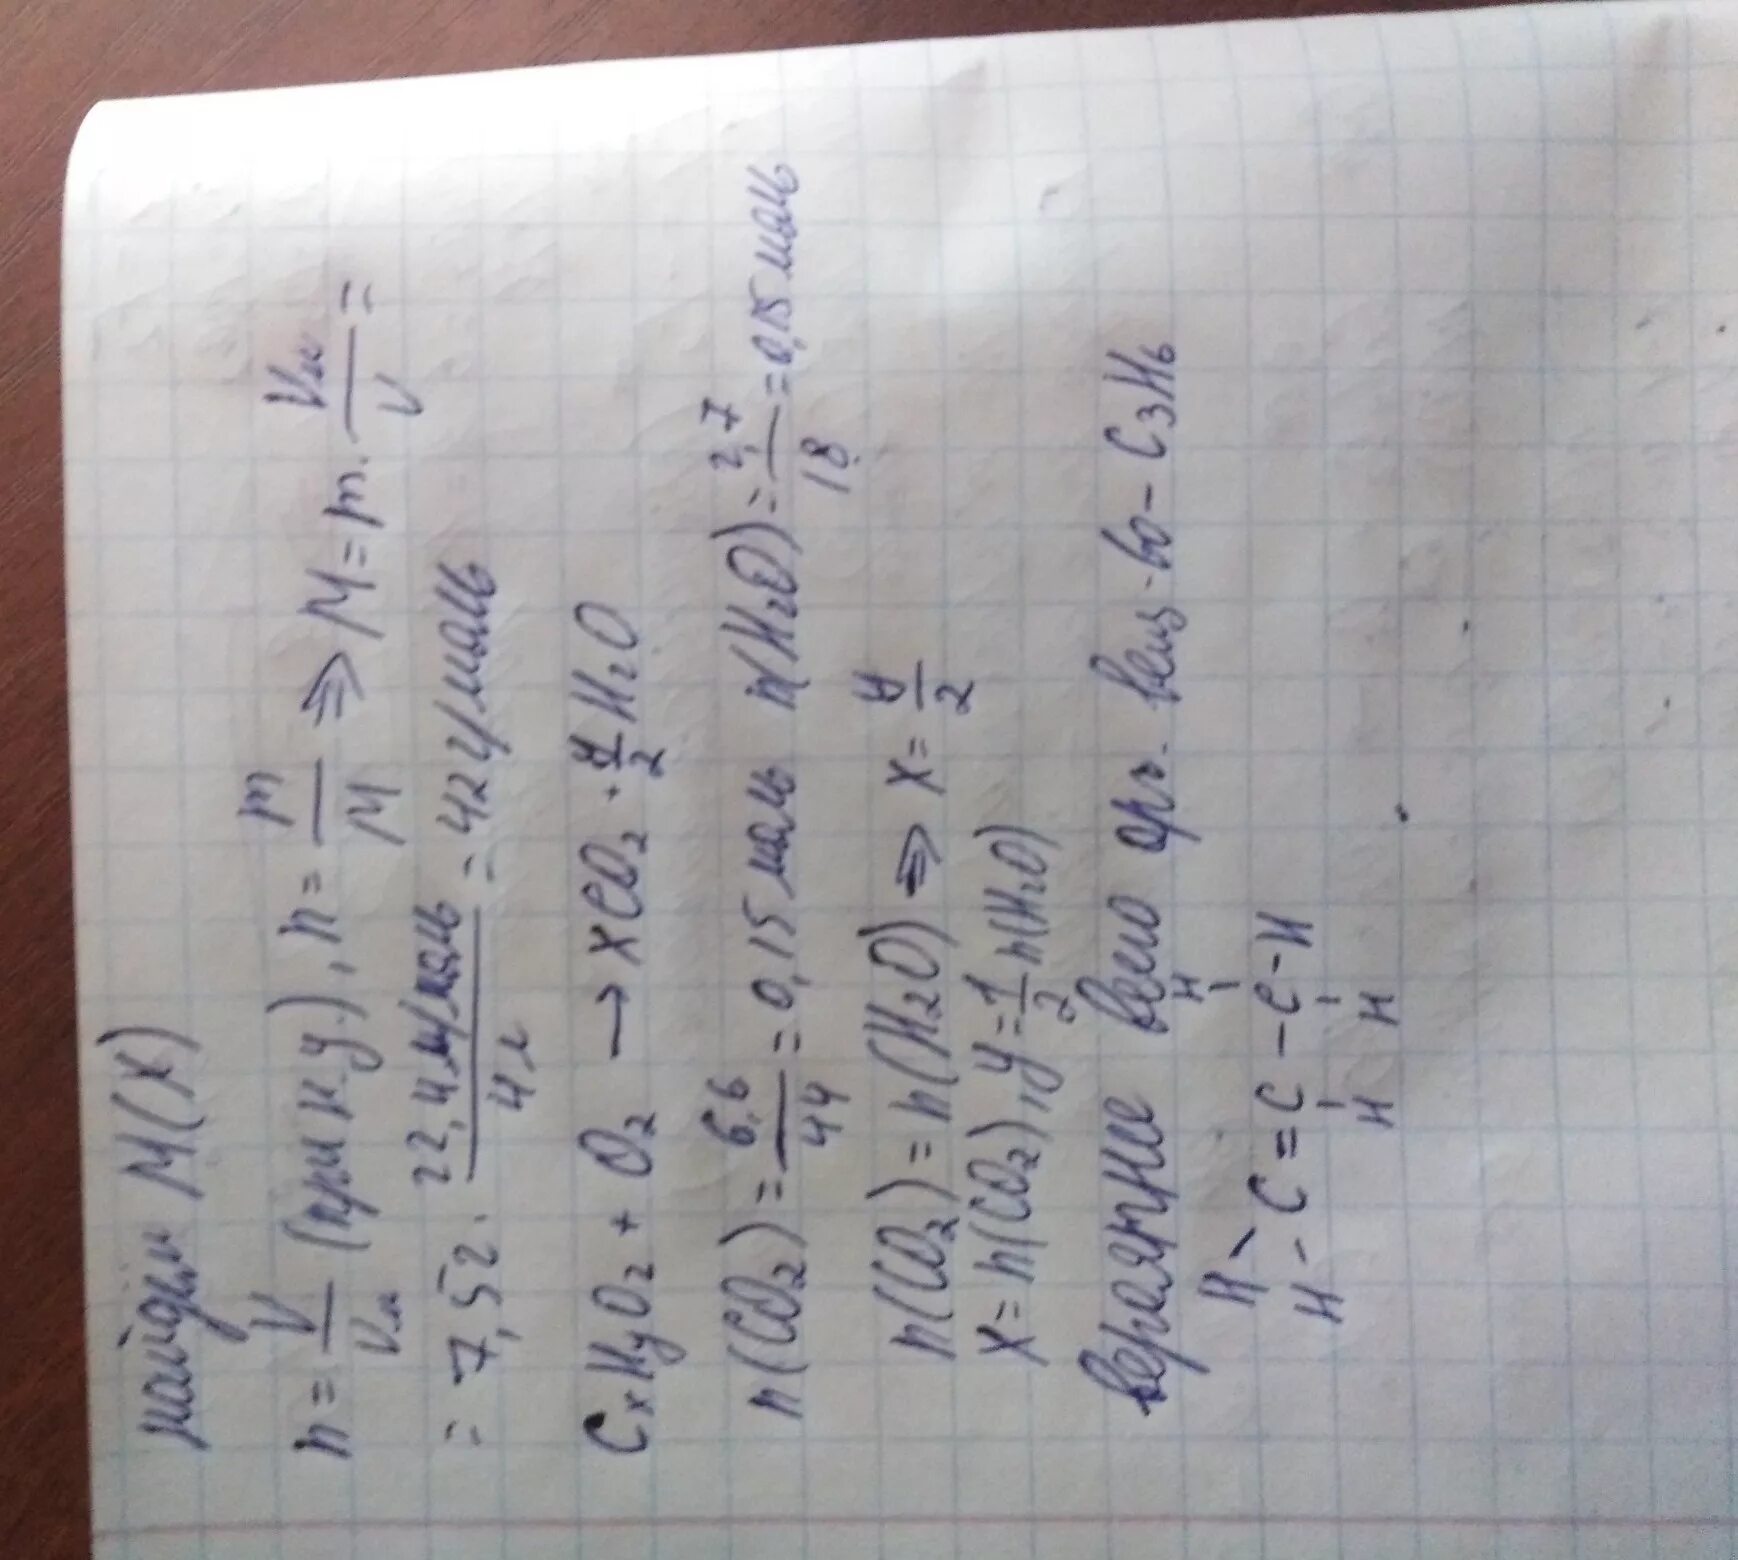 найдем M(X)
n = V/Vм (при н.у.), n = m/M ⇒ M = m · Vм/V =
= 7,52 · 22,4 л/моль / 4 л = 42 г/моль
CxHyO2 + O2 → xCO2 + y/2 H2O
n(CO2) = 6,6/44 = 0,15 моль n(H2O) = 2,7/18 = 0,15 моль
n(CO2) = n(H2O) ⇒ x = y/2
x = n(CO2), y = 1/2 n(H2O)
вероятнее всего орг. вещ-во - C3H6
H H
H - C = C - C - H
H H